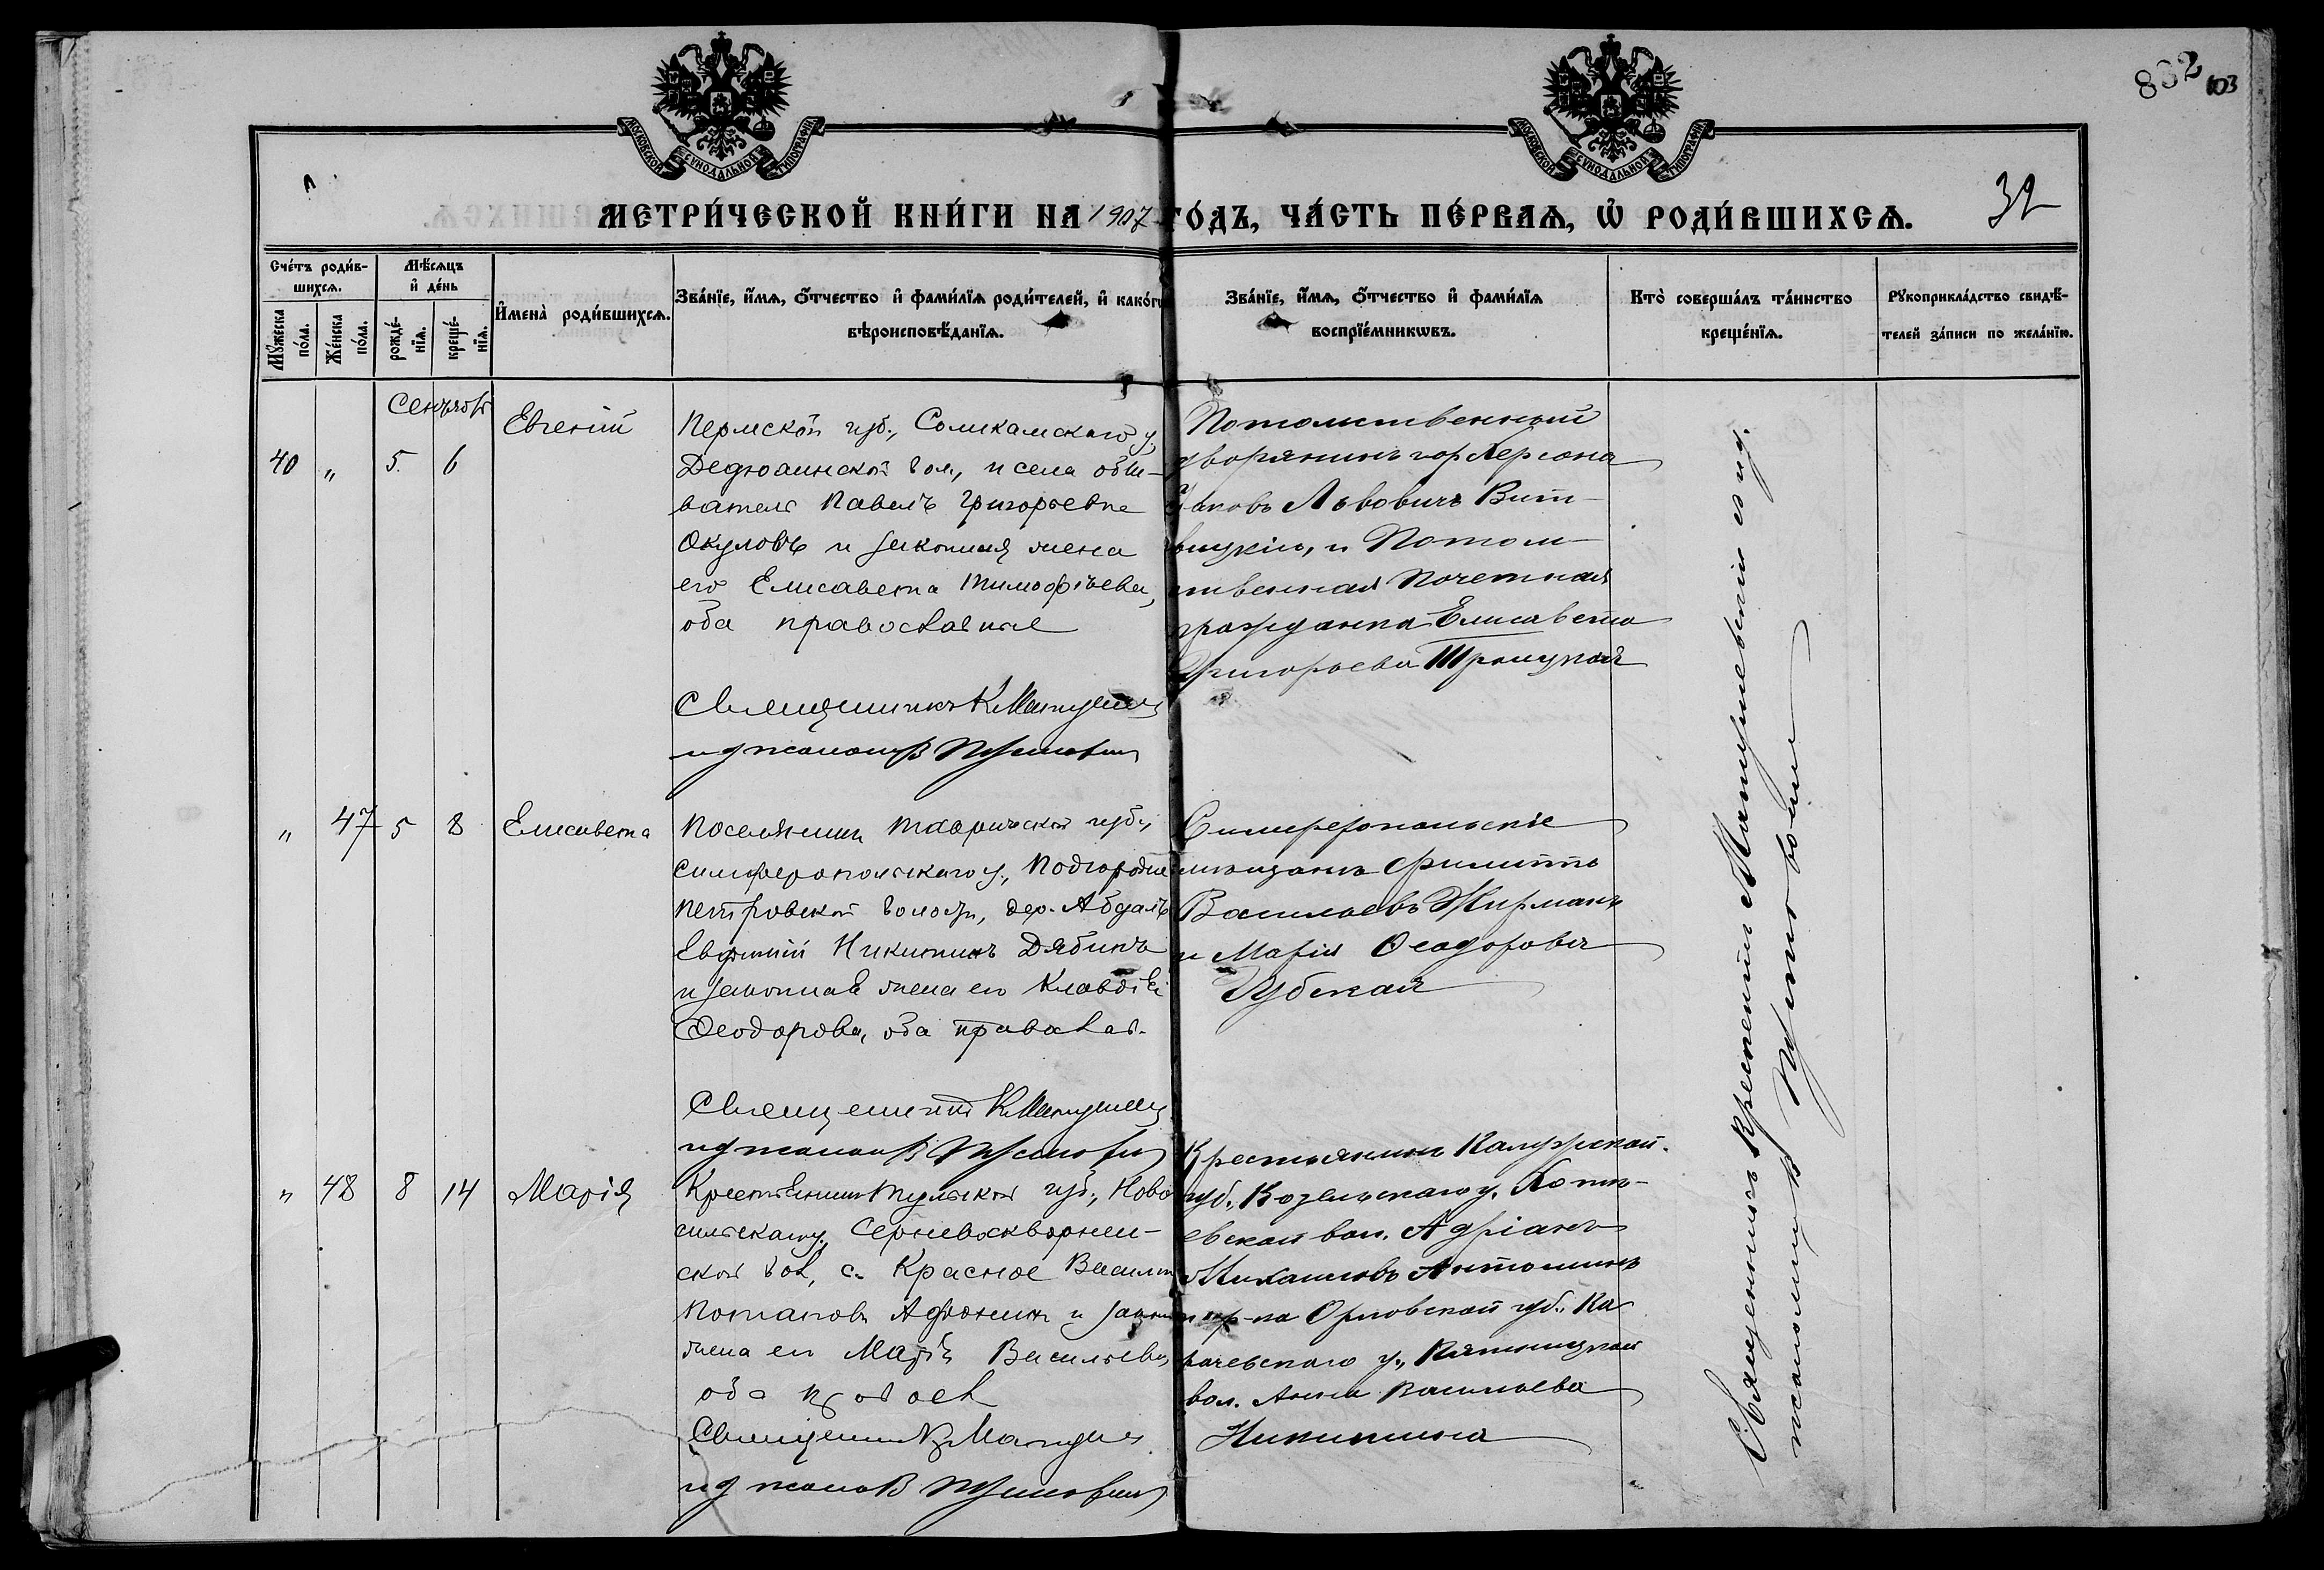 832 103
МОСКОВСКОЙ СУНОДАЛЬНОЙ ТИПОГРАФІИ
МОСКОВСКОЙ СУНОДАЛЬНОЙ ТИПОГРАФІИ
МЕТРИ́ЧЕСКОЙ КНИ́ГИ НА 1907 ГО́ДЪ, ЧА́СТЬ ПЕ́РВАѦ, Ѡ҆ РОДИ́ВШИХСѦ. 32
Сче́тъ роди́в-
шихсѧ.
Мꙋ́жеска по́ла.
Же́нска по́ла.
Мѣ́сѧцъ и҆ де́нь
рожде́-нїѧ.
креще́-нїѧ.
И҆мена̀ роди́вшихсѧ.
Зва́нїе, и҆́мѧ, ѻ҆́тчество и҆ фами́лїѧ роди́телей, и҆ како́гѡ
вѣроисповѣ́данїѧ.
Зва́нїе, и҆́мѧ, ѻ҆́тчество и҆ фами́лїѧ
воспрїе́мникѡвъ.
Кто̀ соверша́лъ та́инство
креще́нїѧ.
Рꙋкоприкла́дство свидѣ́-
телей за́писи по жела́нїю.
Сентябр
40 " 5. 6 Евгеній
Пермской губ., Соликамскаго у.
Дедюхинской вол., и села обы-
ватель Павелъ Григорьевъ
Окуловъ и законная жена
его Елисавета Тимофѣева,
оба православные
Священникъ К. Матушев
псаломщ В Тутов
Потомственный
дворянинъ гор. Херсона
Яковъ Львовичъ Вит-
вицкій, и Потом-
ственная почетная
гражданка Елисавета
Григорьева Троицкая
" 47 5 8 Елисавета
Поселянинъ Таврической губ.,
Симферопольскаго у., Подгородне
Петровской волости, дер. Абдалъ
Евфимій Никитинъ Дябинъ
и законная жена его Клавдія
Феодорова, оба православ.
Священникъ К. Матушев
псаломщ В
Симферопольскіе
мѣщане Филиппъ
Васильевъ Жирманъ
и Марія Ѳеодорова
Губская
" 48 8 14 Марія
Крестьянинъ Тульской губ., Ново
сильскаго у.
ской вол, с. Красное Василій
Потаповъ Афонинъ и законная
жена его Марія Васильева,
оба правосл
Священникъ К. Матушев
псалом В
Крестьянинъ Калужской
губ., Козельскаго у.
евской вол. Адріанъ
Михаиловъ Антошинъ
и кр-ка Орловской губ. Ка
рачевскаго у., Пятницкой
вол. Анна Васильева
Никитина
Священникъ Крискентій Матушевскій съ и. д.
псаломщ. В.